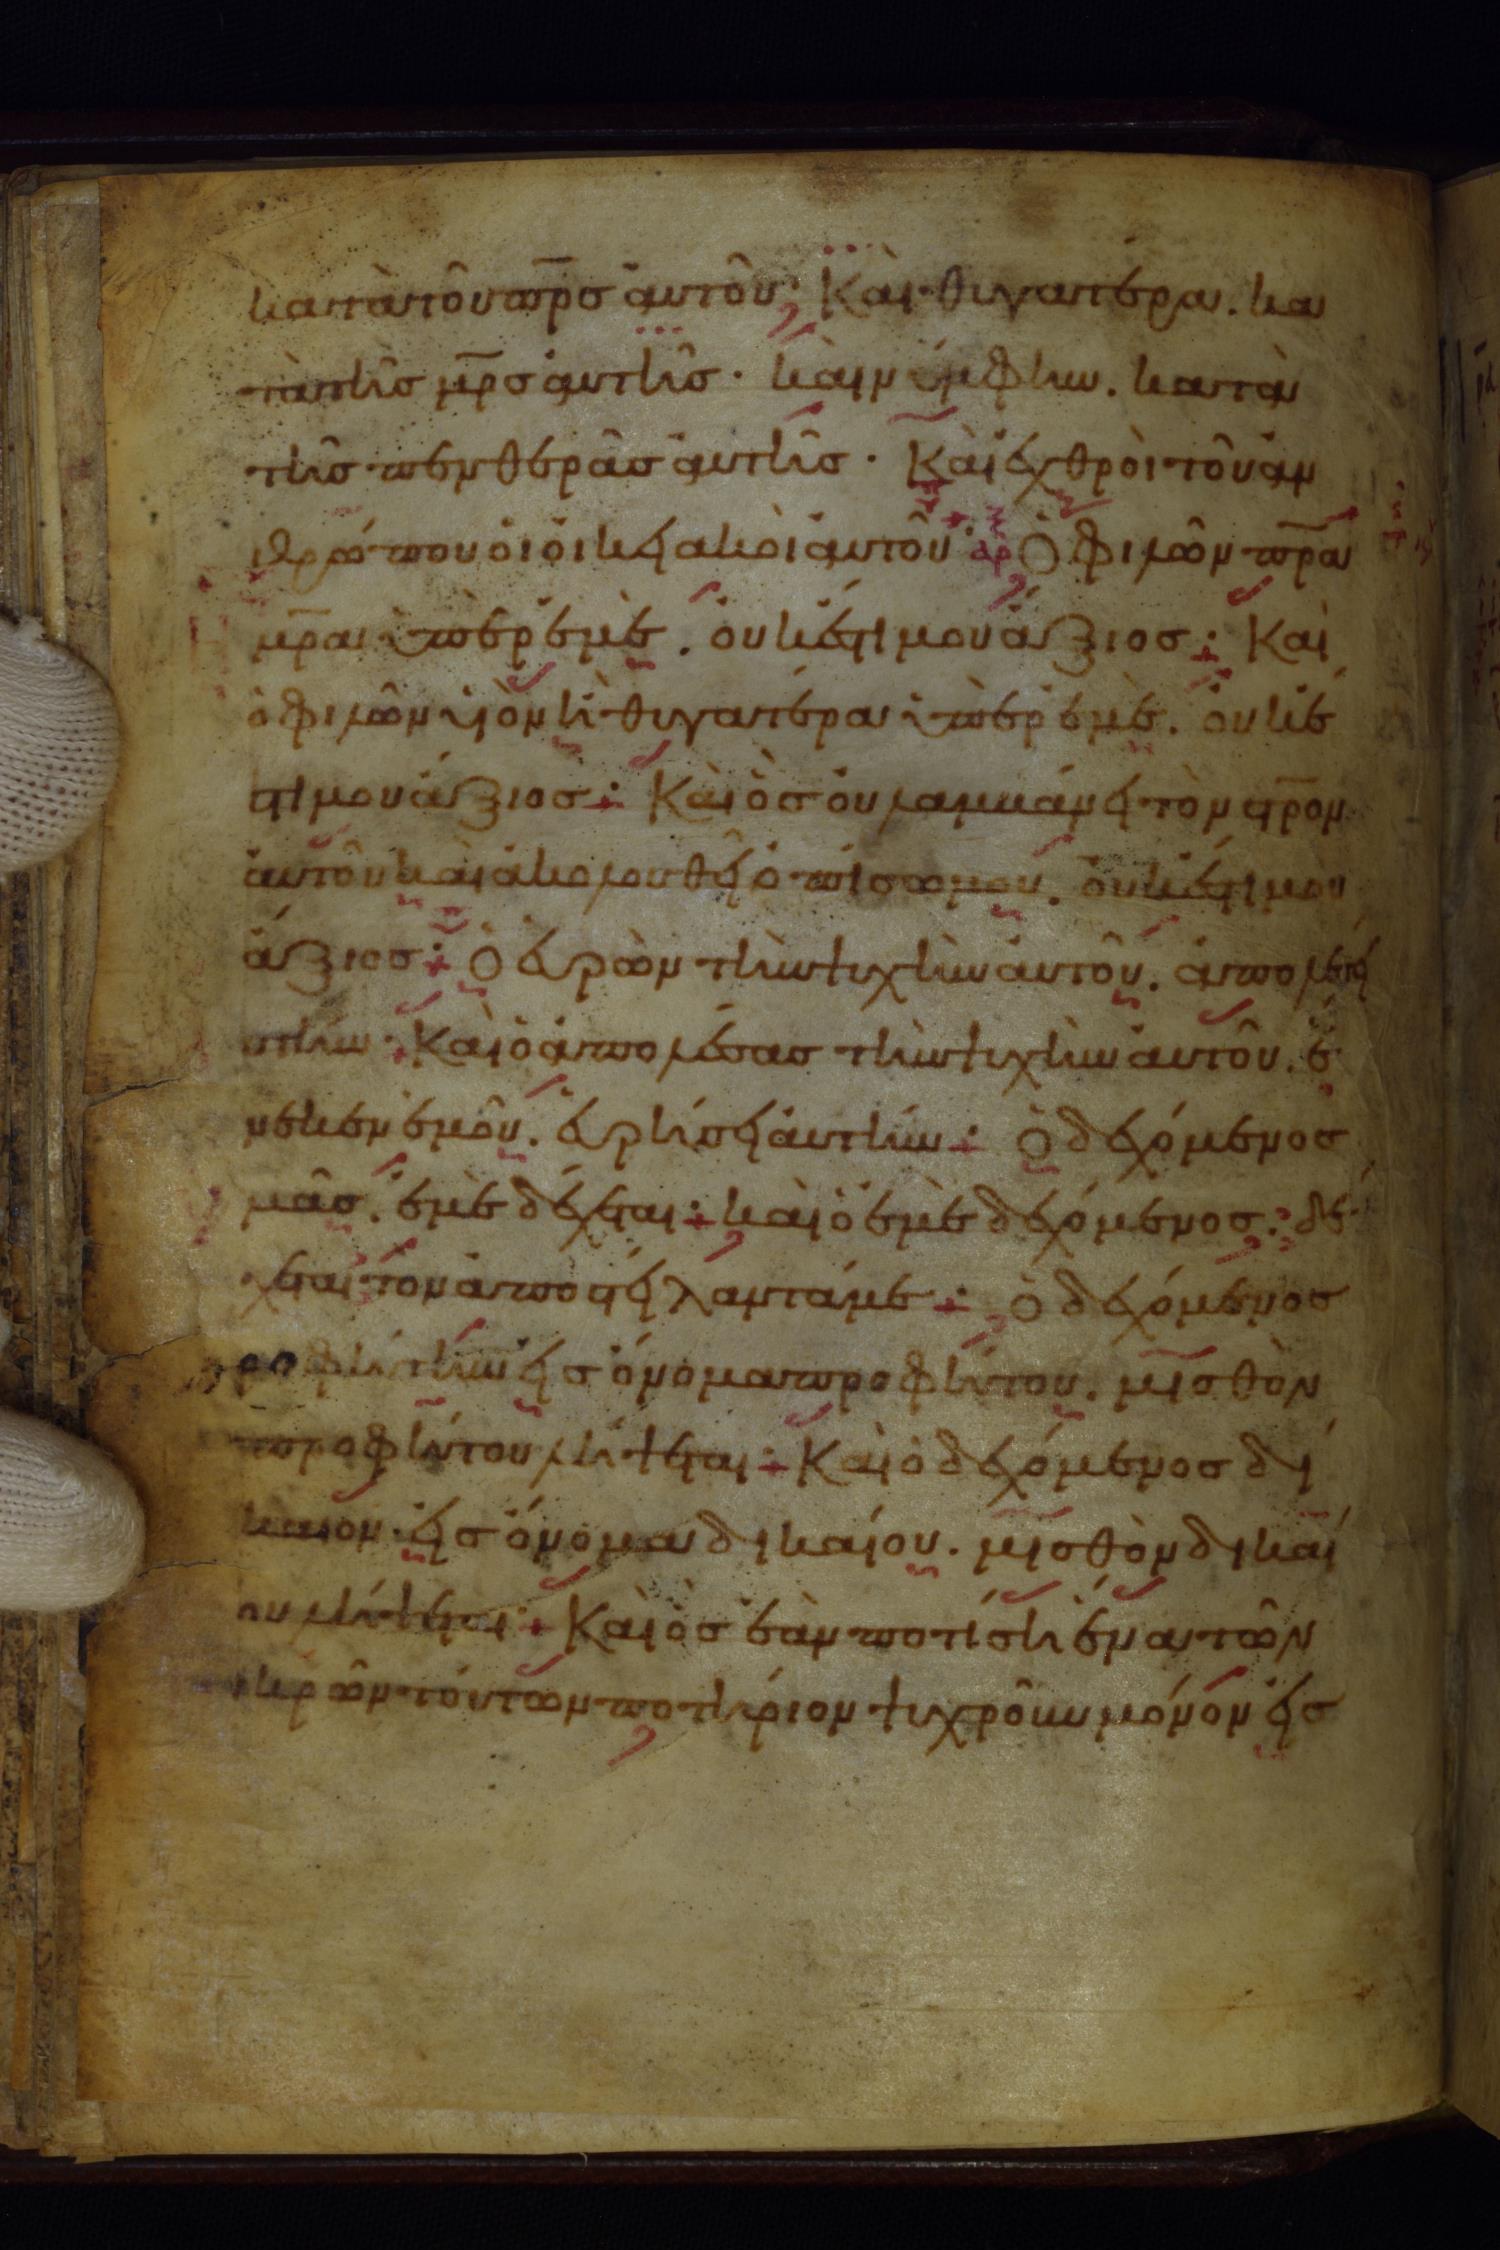 κατὰ τοῦ πρς αὐτοῦ· Καὶ θυγατέρα. κα
τὰ τῆς μρς αὐτῆς· καὶ νύμφην. κατὰ
τῆς πενθερᾶς αὐτῆς· Καὶ ἐχθροὶ τοῦ ἀν
θρώπου οἱ οἰκειακοὶ αὐτοῦ· αρ Ὁ φιλῶν πρα
μρα ὑπὲρ ἐμὲ. οὐκ ἔστι μου ἄξιος: Καὶ
ὁ φιλῶν υἱὸν ἢ θυγατέρα ὑπὲρ ἐμὲ. οὐκ ἔ
στι μου ἄξιος: Καὶ ὃς οὐ λαμβάνει τὸν στρον
αὐτοῦ καὶ ἀκολουθεῖ ὀπίσω μου. οὐκ ἔστι μου
ἄξιος: Ὁ εὑρὼν τὴν ψυχὴν αὐτοῦ. ἀπολέσει
Καὶ ὁ ἀπολέσας τὴν ψυχὴν αὐτοῦ. ἕ
νεκεν ἐμοῦ. εὑρήσει αὐτήν: Ὁ δεχόμενος
μᾶς. ἐμὲ δέχεται: καὶ ὁ ἐμὲ δεχόμενος. δέ
χεται τὸν ἀποστείλαντά με: Ὁ δεχόμενος
ροφήτην εἰς ὄνομα προφήτου. μισθὸν
προφήτου λήψεται: Καὶ ὁ δεχόμενος δί
καιον. εἰς ὄνομα δικαίου. μισθὸν δικαί
ου λήψεται: Καὶ ὃς ἐὰν ποτίσῃ ἕνα τῶν
ικρῶν τούτων ποτήριον ψυχροῦ μόνον εἰς